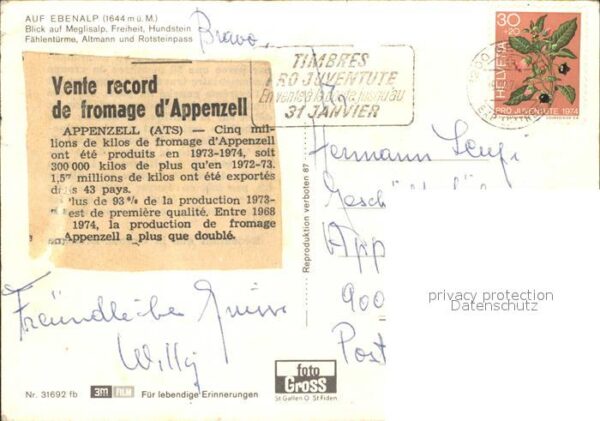 AUF EBENALP (1644 m ü. M.)
Blick auf Meglisalp, Freiheit, Hundstein
Fählentürme, Altmann und Rotsteinpass
Bravo.
Vente record
de fromage d'Appenzell
APPENZELL (ATS) — Cinq mil-
lions de kilos de fromage d'Appenzell
ont été produits en 1973-1974, soit
300 000 kilos de plus qu'en 1972-73.
1,5 millions de kilos ont été exportés
43 pays.
lus de 93 % de la production 1973-
est de première qualité. Entre 1968
1974, la production de fromage
Appenzell a plus que doublé.
TIMBRES
PRO JUVENTUTE
En vente à la poste jusqu'au
31 JANVIER
30
+20
HELVETIA
PRO JUVENTUTE 1974
Hermann
App
900
Post
Reproduktion verboten 87
privacy protection
Datenschutz
Freundliche Grüsse
Willy
foto
Gross
St Gallen O St Fiden
Nr. 31692 fb
3M FILM
Für lebendige Erinnerungen